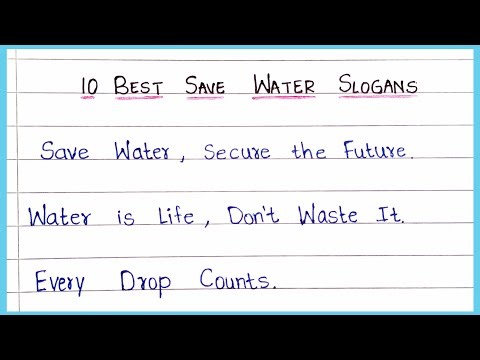 10 BEST SAVE WATER SLOGANS
Save Water, Secure the Future.
Water is Life, Don't Waste It.
Every Drop Counts.